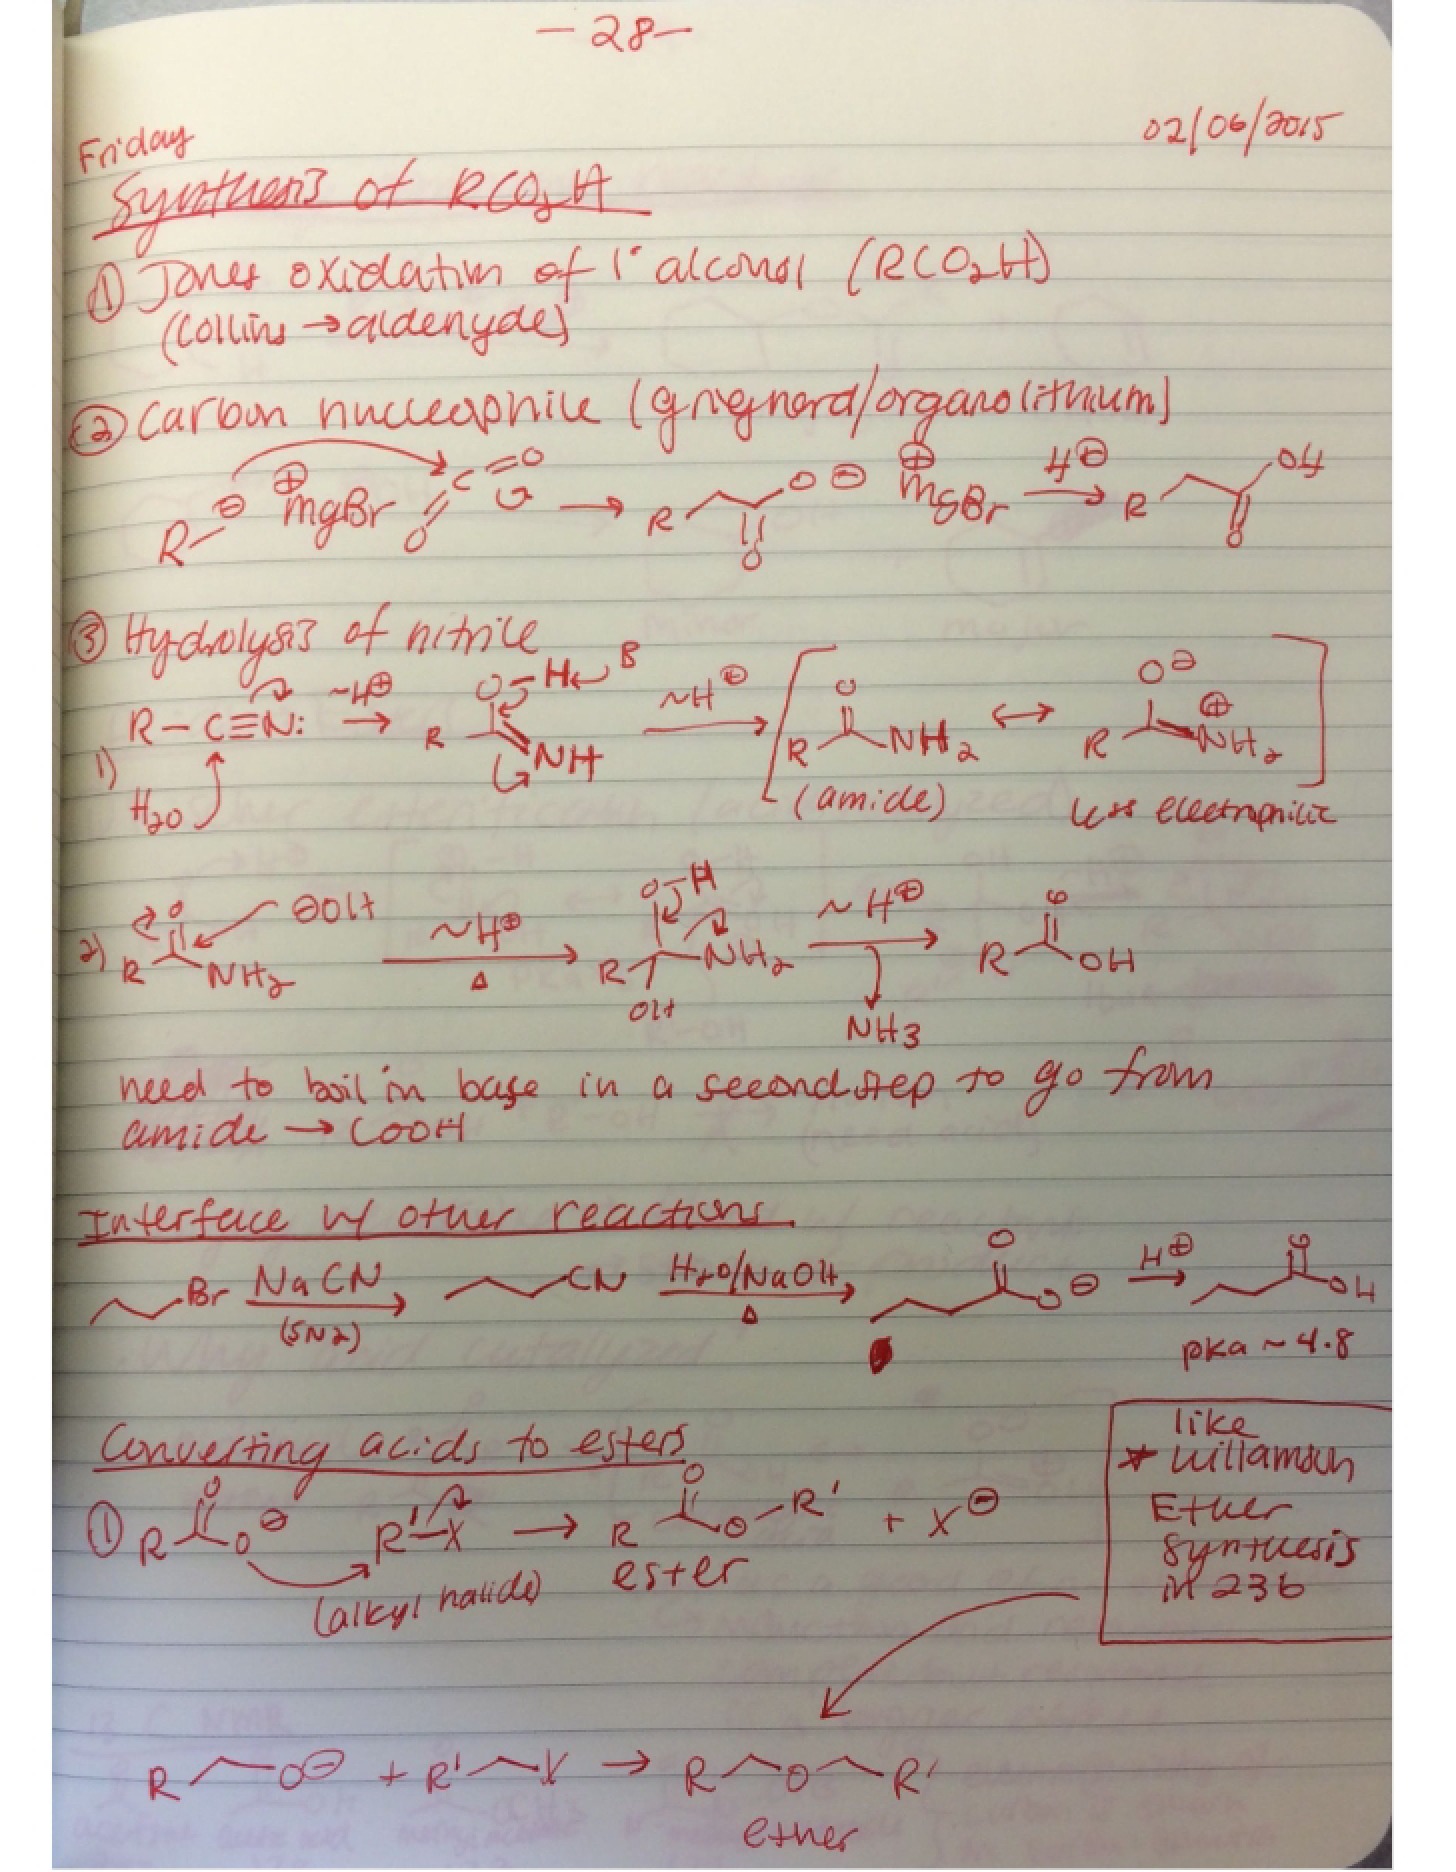 -28-
02/06/2015
Friday
Synthesis of RCO₂H
① Jones oxidation of 1° alcohol (RCO₂H)
(Collins → aldehyde)
② Carbon nucleophile (grignard/organolithium)
R ⊖ ⊕ MgBr O=C=O → R O O ⊖ ⊕ MgBr H⊕ → R O OH
③ Hydrolysis of nitrile
1) R-C≡N: H₂O ~H⊕ → R O-H B NH ~H⊕ → [R O NH₂ ↔ R O⊖ ⊕NH₂]
(amide) less electrophilic
2) R O NH₂ ⊖OH ~H⊕ Δ → R O-H NH₂ OH ~H⊕ → R O OH
NH3
need to boil in base in a second step to go from
amide → COOH
Interface w/ other reactions
Br NaCN (SN2) → CN H₂O/NaOH Δ → O O⊖ H⊕ → O OH
pka ~ 4.8
Converting acids to esters
① R O O⊖ R'-X → R O O-R' + X⊖
(alkyl halide) ester
like
* Willamson
Ether
Synthesis
in 236
R O⊖ + R' X → R O R'
ether